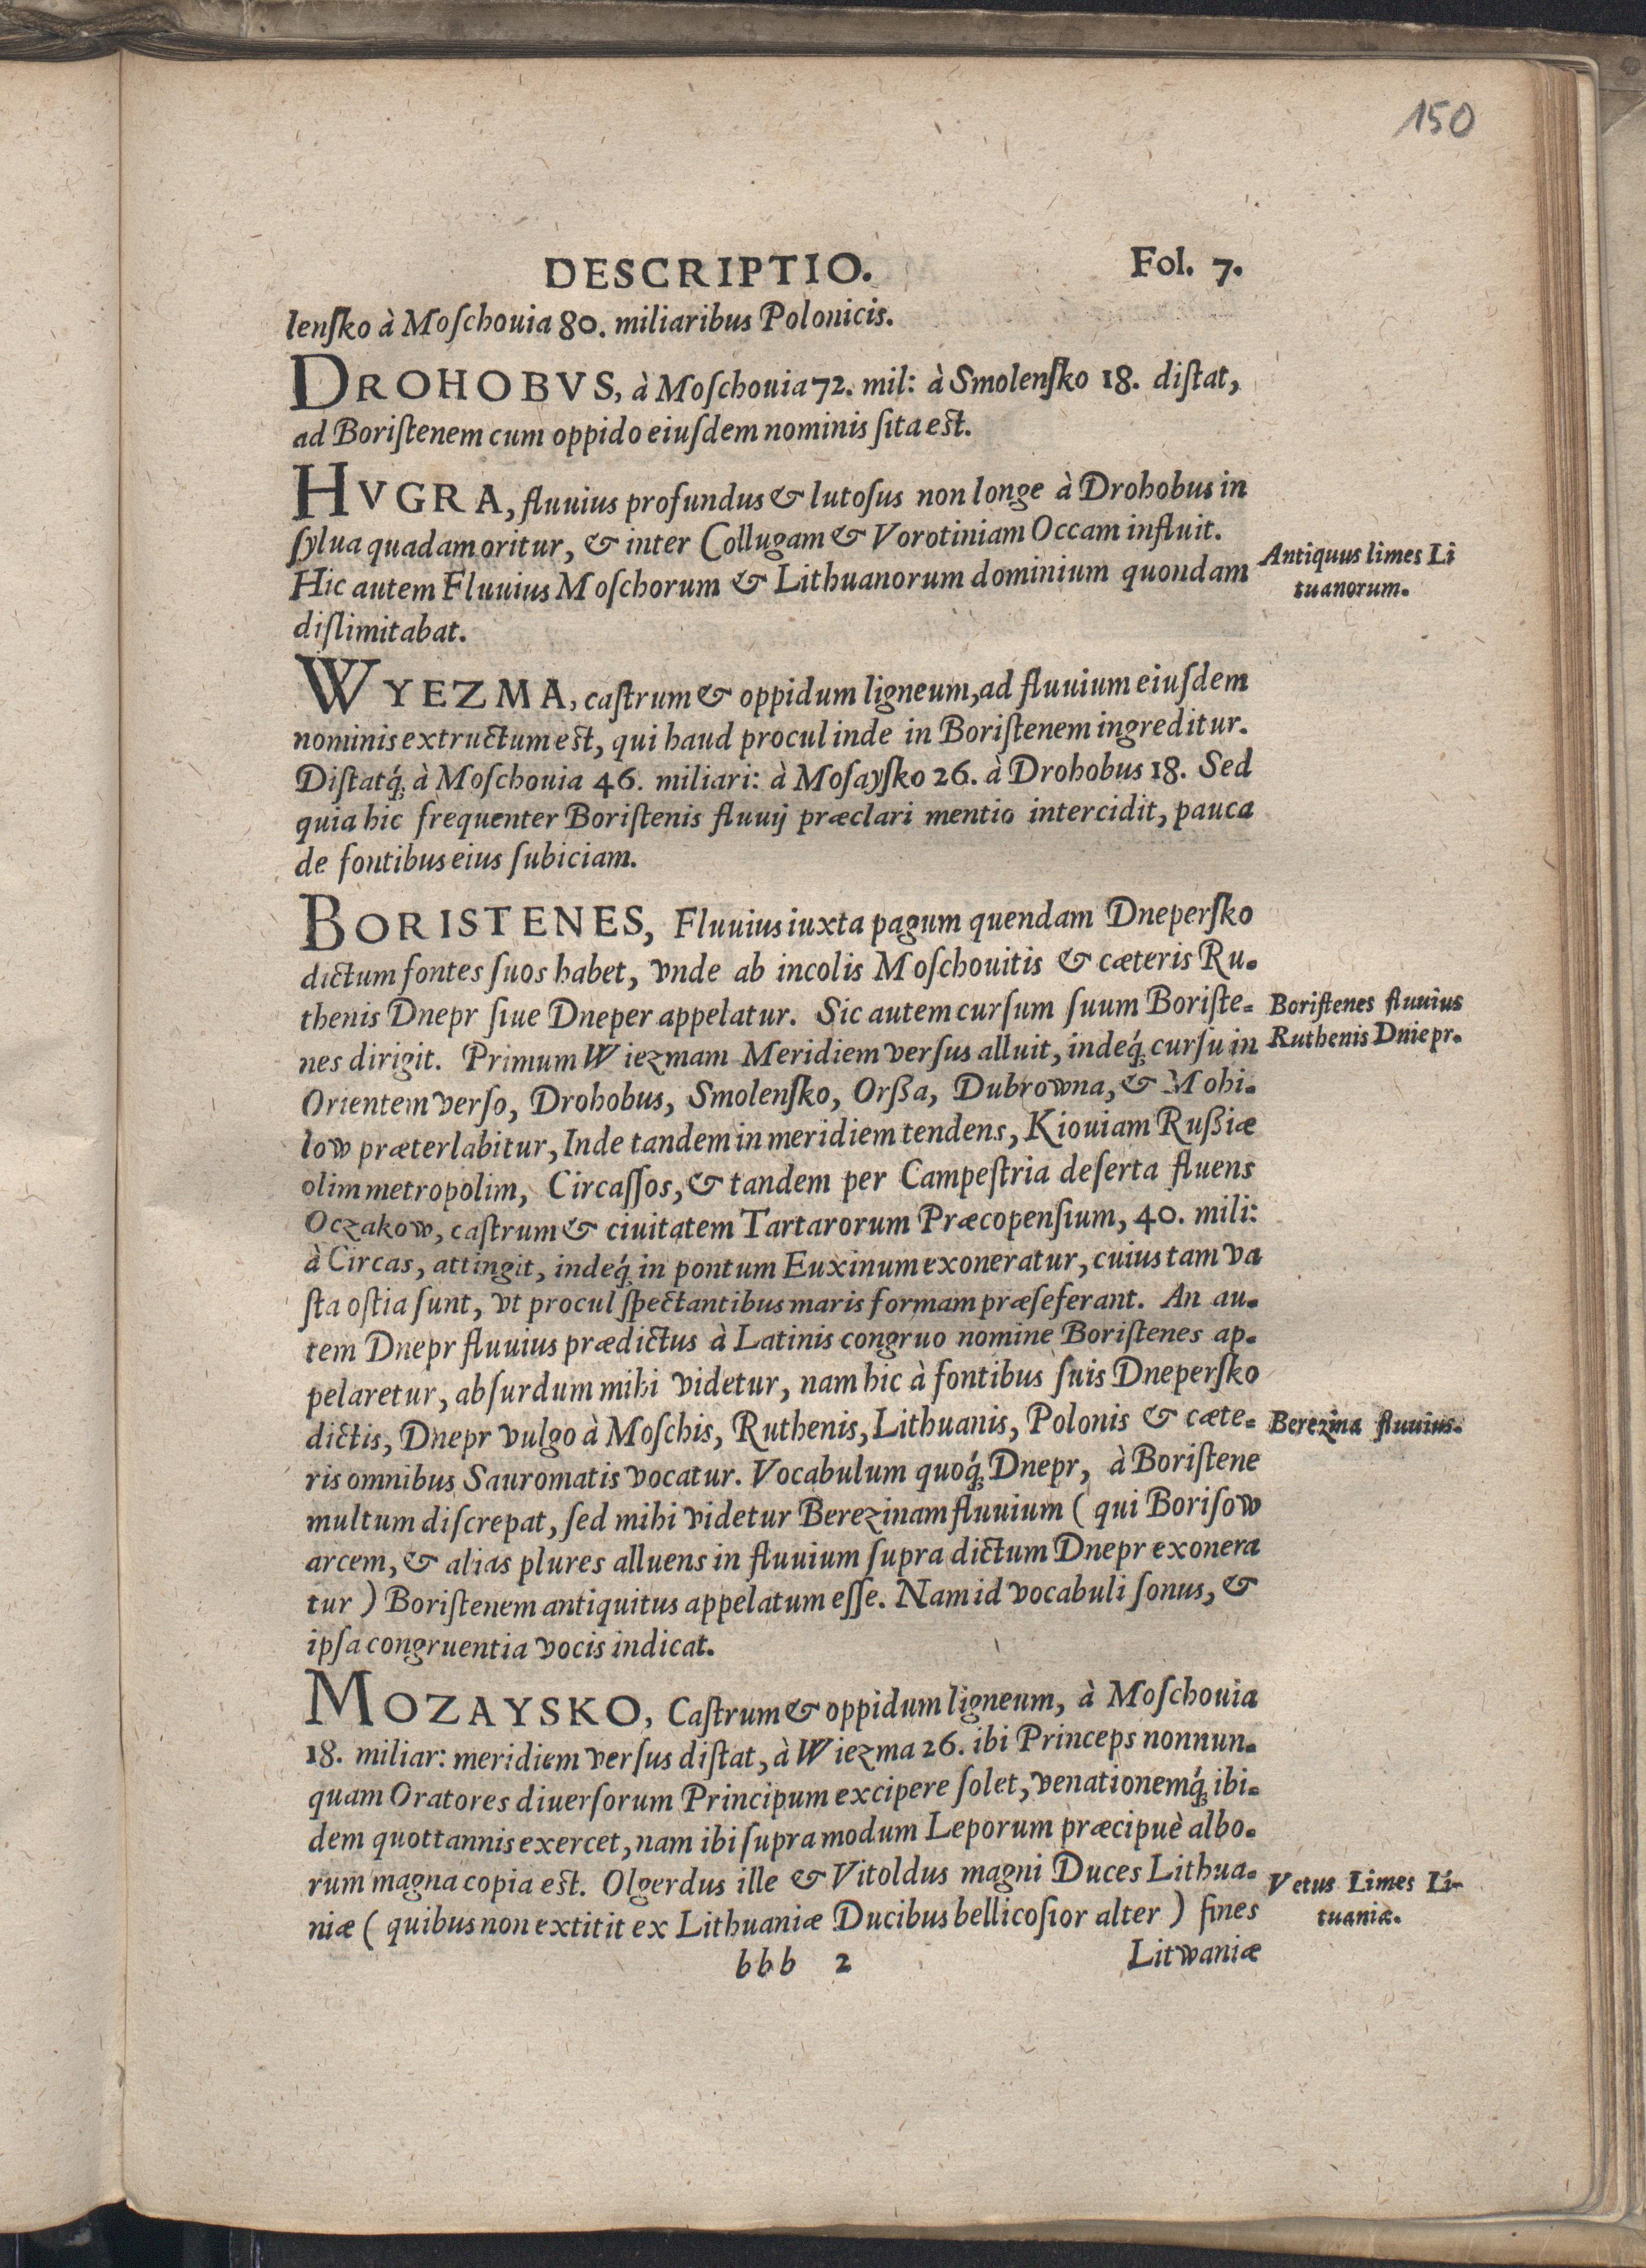 150
DESCRIPTIO. Fol. 7.
lenſko à Moſchouia 80. miliaribus Polonicis.
DROHOBVS, à Moſchouia 72. mil: à Smolenſko 18. diſtat,
ad Boriſtenem cum oppido eiuſdem nominis ſita est.
HVGRA, fluuius profundus & lutoſus non longe à Drohobus in
ſylua quadam oritur, & inter Collugam & Vorotiniam Occam influit.
Hic autem Fluuius Moſchorum & Lithuanorum dominium quondam
diſlimitabat.
Antiquus limes Li
tuanorum.
WYEZMA, caſtrum & oppidum ligneum, ad fluuium eiuſdem
nominis extructum est, qui haud procul inde in Boriſtenem ingreditur.
Diſtatq́; à Moſchouia 46. miliari: à Moſayſko 26. à Drohobus 18. Sed
quia hic frequenter Boriſtenis fluuij præclari mentio intercidit, pauca
de fontibus eius ſubiciam.
BORISTENES, Fluuius iuxta pagum quendam Dneperſko
dictum fontes ſuos habet, vnde ab incolis Moſchouitis & cæteris Ru-
thenis Dnepr ſiue Dneper appelatur. Sic autem curſum ſuum Boriſte-
nes dirigit. Primum Wiezmam Meridiem verſus alluit, indeq́; curſu in
Boriſtenes fluuius
Ruthenis Dniepr.
Orientem verſo, Drohobus, Smolenſko, Orßa, Dubrowna, & Mohi-
low præterlabitur, Inde tandem in meridiem tendens, Kiouiam Rußiæ
olim metropolim, Circaſſos, & tandem per Campeſtria deſerta fluens
Oczakow, caſtrum & ciuitatem Tartarorum Præcopenſium, 40. mili:
à Circas, attingit, indeq́; in pontum Euxinum exoneratur, cuius tam va
ſta oſtia ſunt, vt procul ſpectantibus maris formam præſeferant. An au-
tem Dnepr fluuius prædictus à Latinis congruo nomine Boriſtenes ap-
pelaretur, abſurdum mihi videtur, nam hic à fontibus ſuis Dneperſko
dictis, Dnepr vulgo à Moſchis, Ruthenis, Lithuanis, Polonis & cæte-
Berezina fluuius.
ris omnibus Sauromatis vocatur. Vocabulum quoq́; Dnepr, à Boriſtene
multum diſcrepat, ſed mihi videtur Berezinam fluuium ( qui Boriſow
arcem, & alias plures alluens in fluuium ſupra dictum Dnepr exonera
tur ) Boriſtenem antiquitus appelatum eſſe. Nam id vocabuli ſonus, &
ipſa congruentia vocis indicat.
MOZAYSKO, Caſtrum & oppidum ligneum, à Moſchouia
18. miliar: meridiem verſus diſtat, à Wiezma 26. ibi Princeps nonnun-
quam Oratores diuerſorum Principum excipere ſolet, venationemq́; ibi-
dem quottannis exercet, nam ibi ſupra modum Leporum præcipuè albo-
rum magna copia est. Olgerdus ille & Vitoldus magni Duces Lithua-
niæ ( quibus non extitit ex Lithuaniæ Ducibus bellicoſior alter ) fines
Vetus Limes Li-
tuaniæ.
bbb 2 Litwaniæ